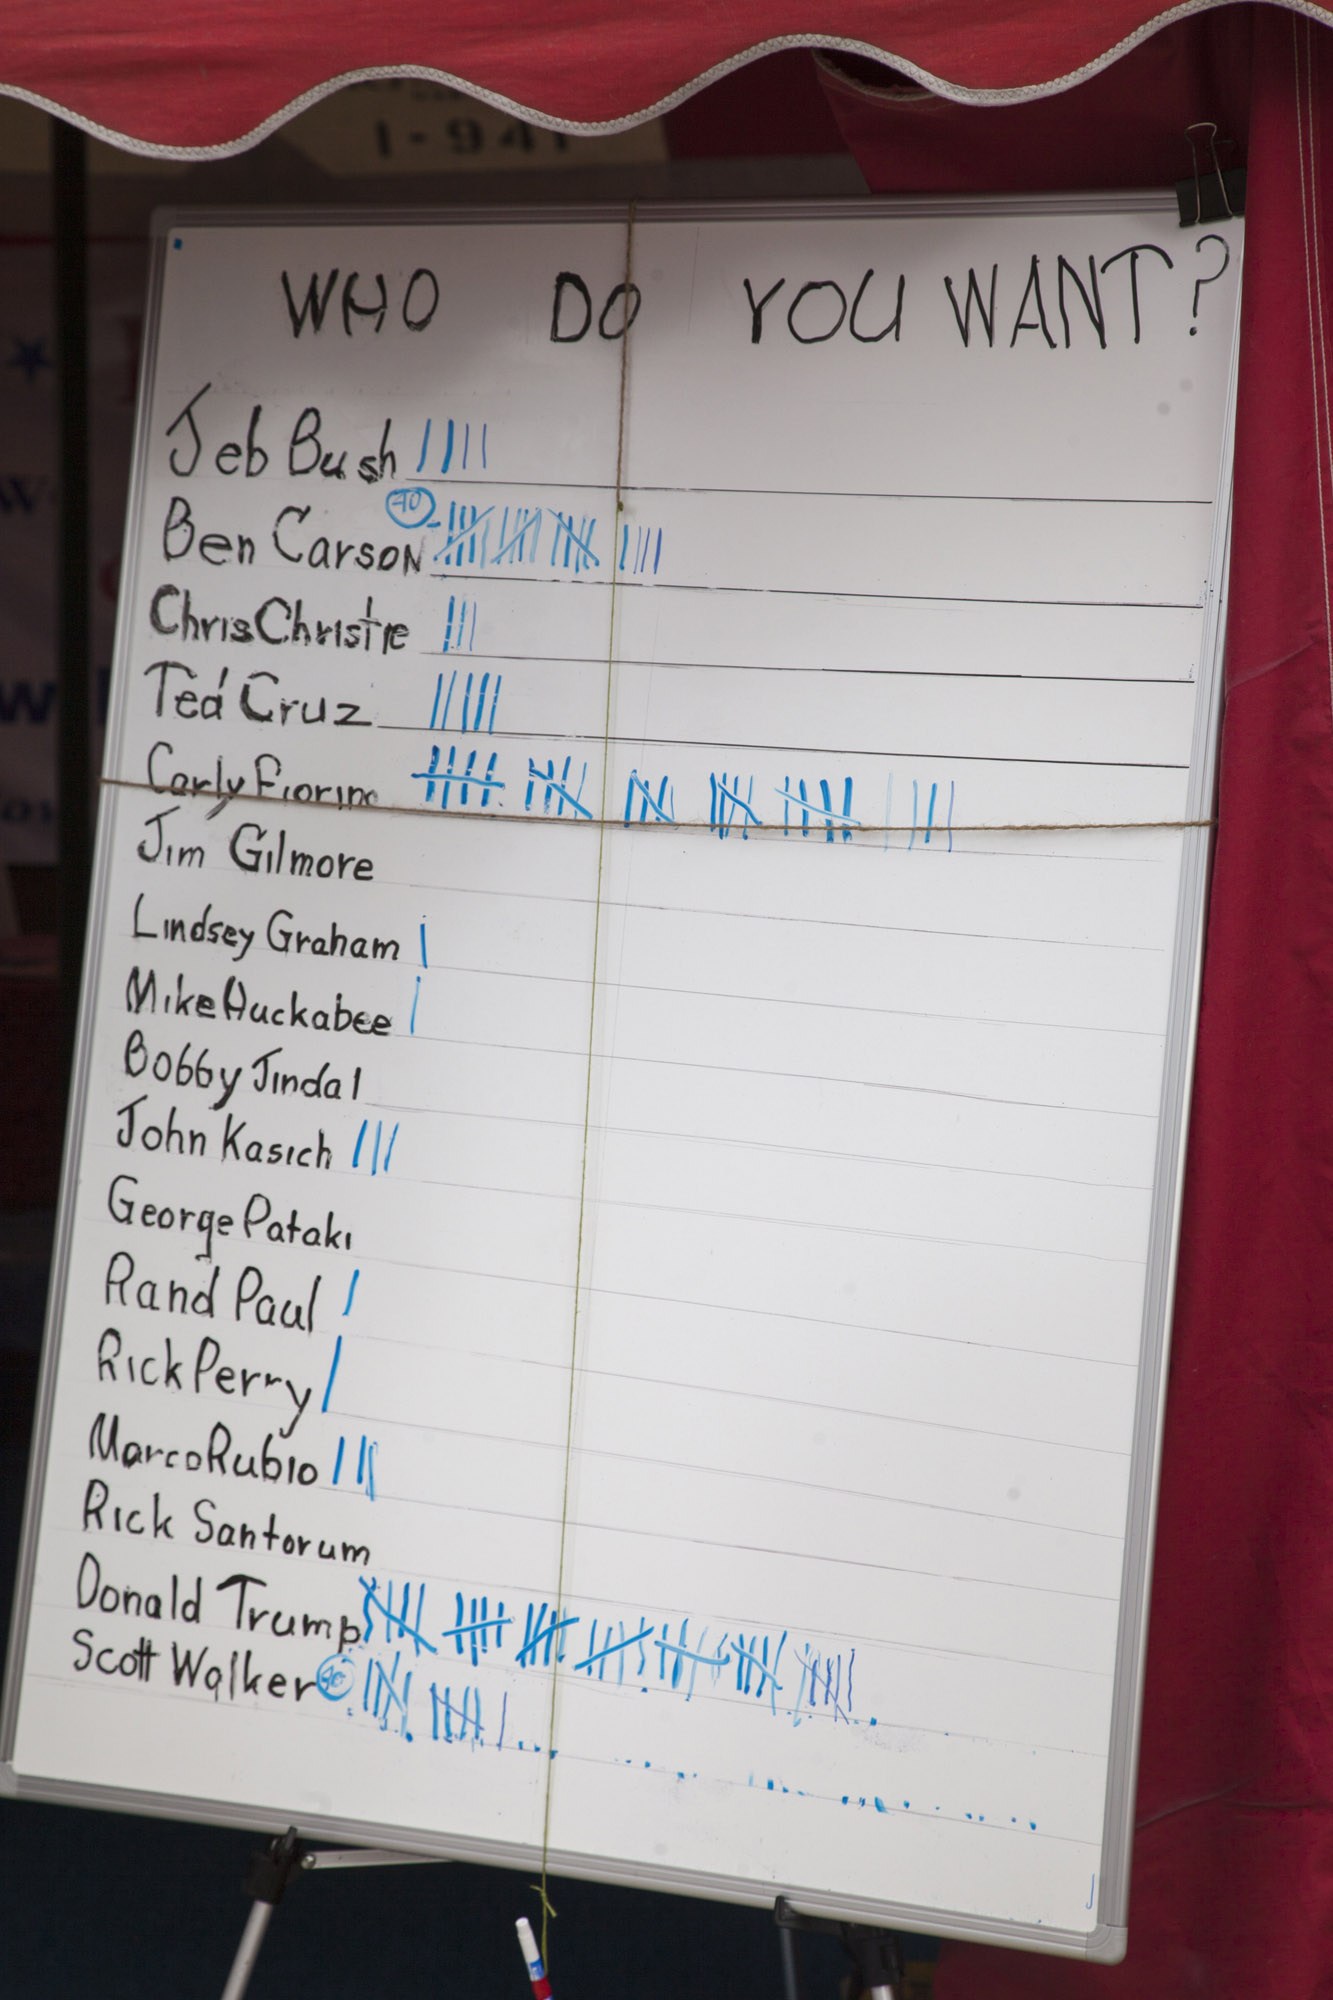 I-941
WHO DO YOU WANT?
Jeb Bush
40
Ben Carson
Chris Christie
Ted Cruz
Carly Fiorina
Jim Gilmore
Lindsey Graham
Mike Huckabee
Bobby Jindal
John Kasich
George Pataki
Rand Paul
Rick Perry
Marco Rubio
Rick Santorum
Donald Trump
Scott Walker